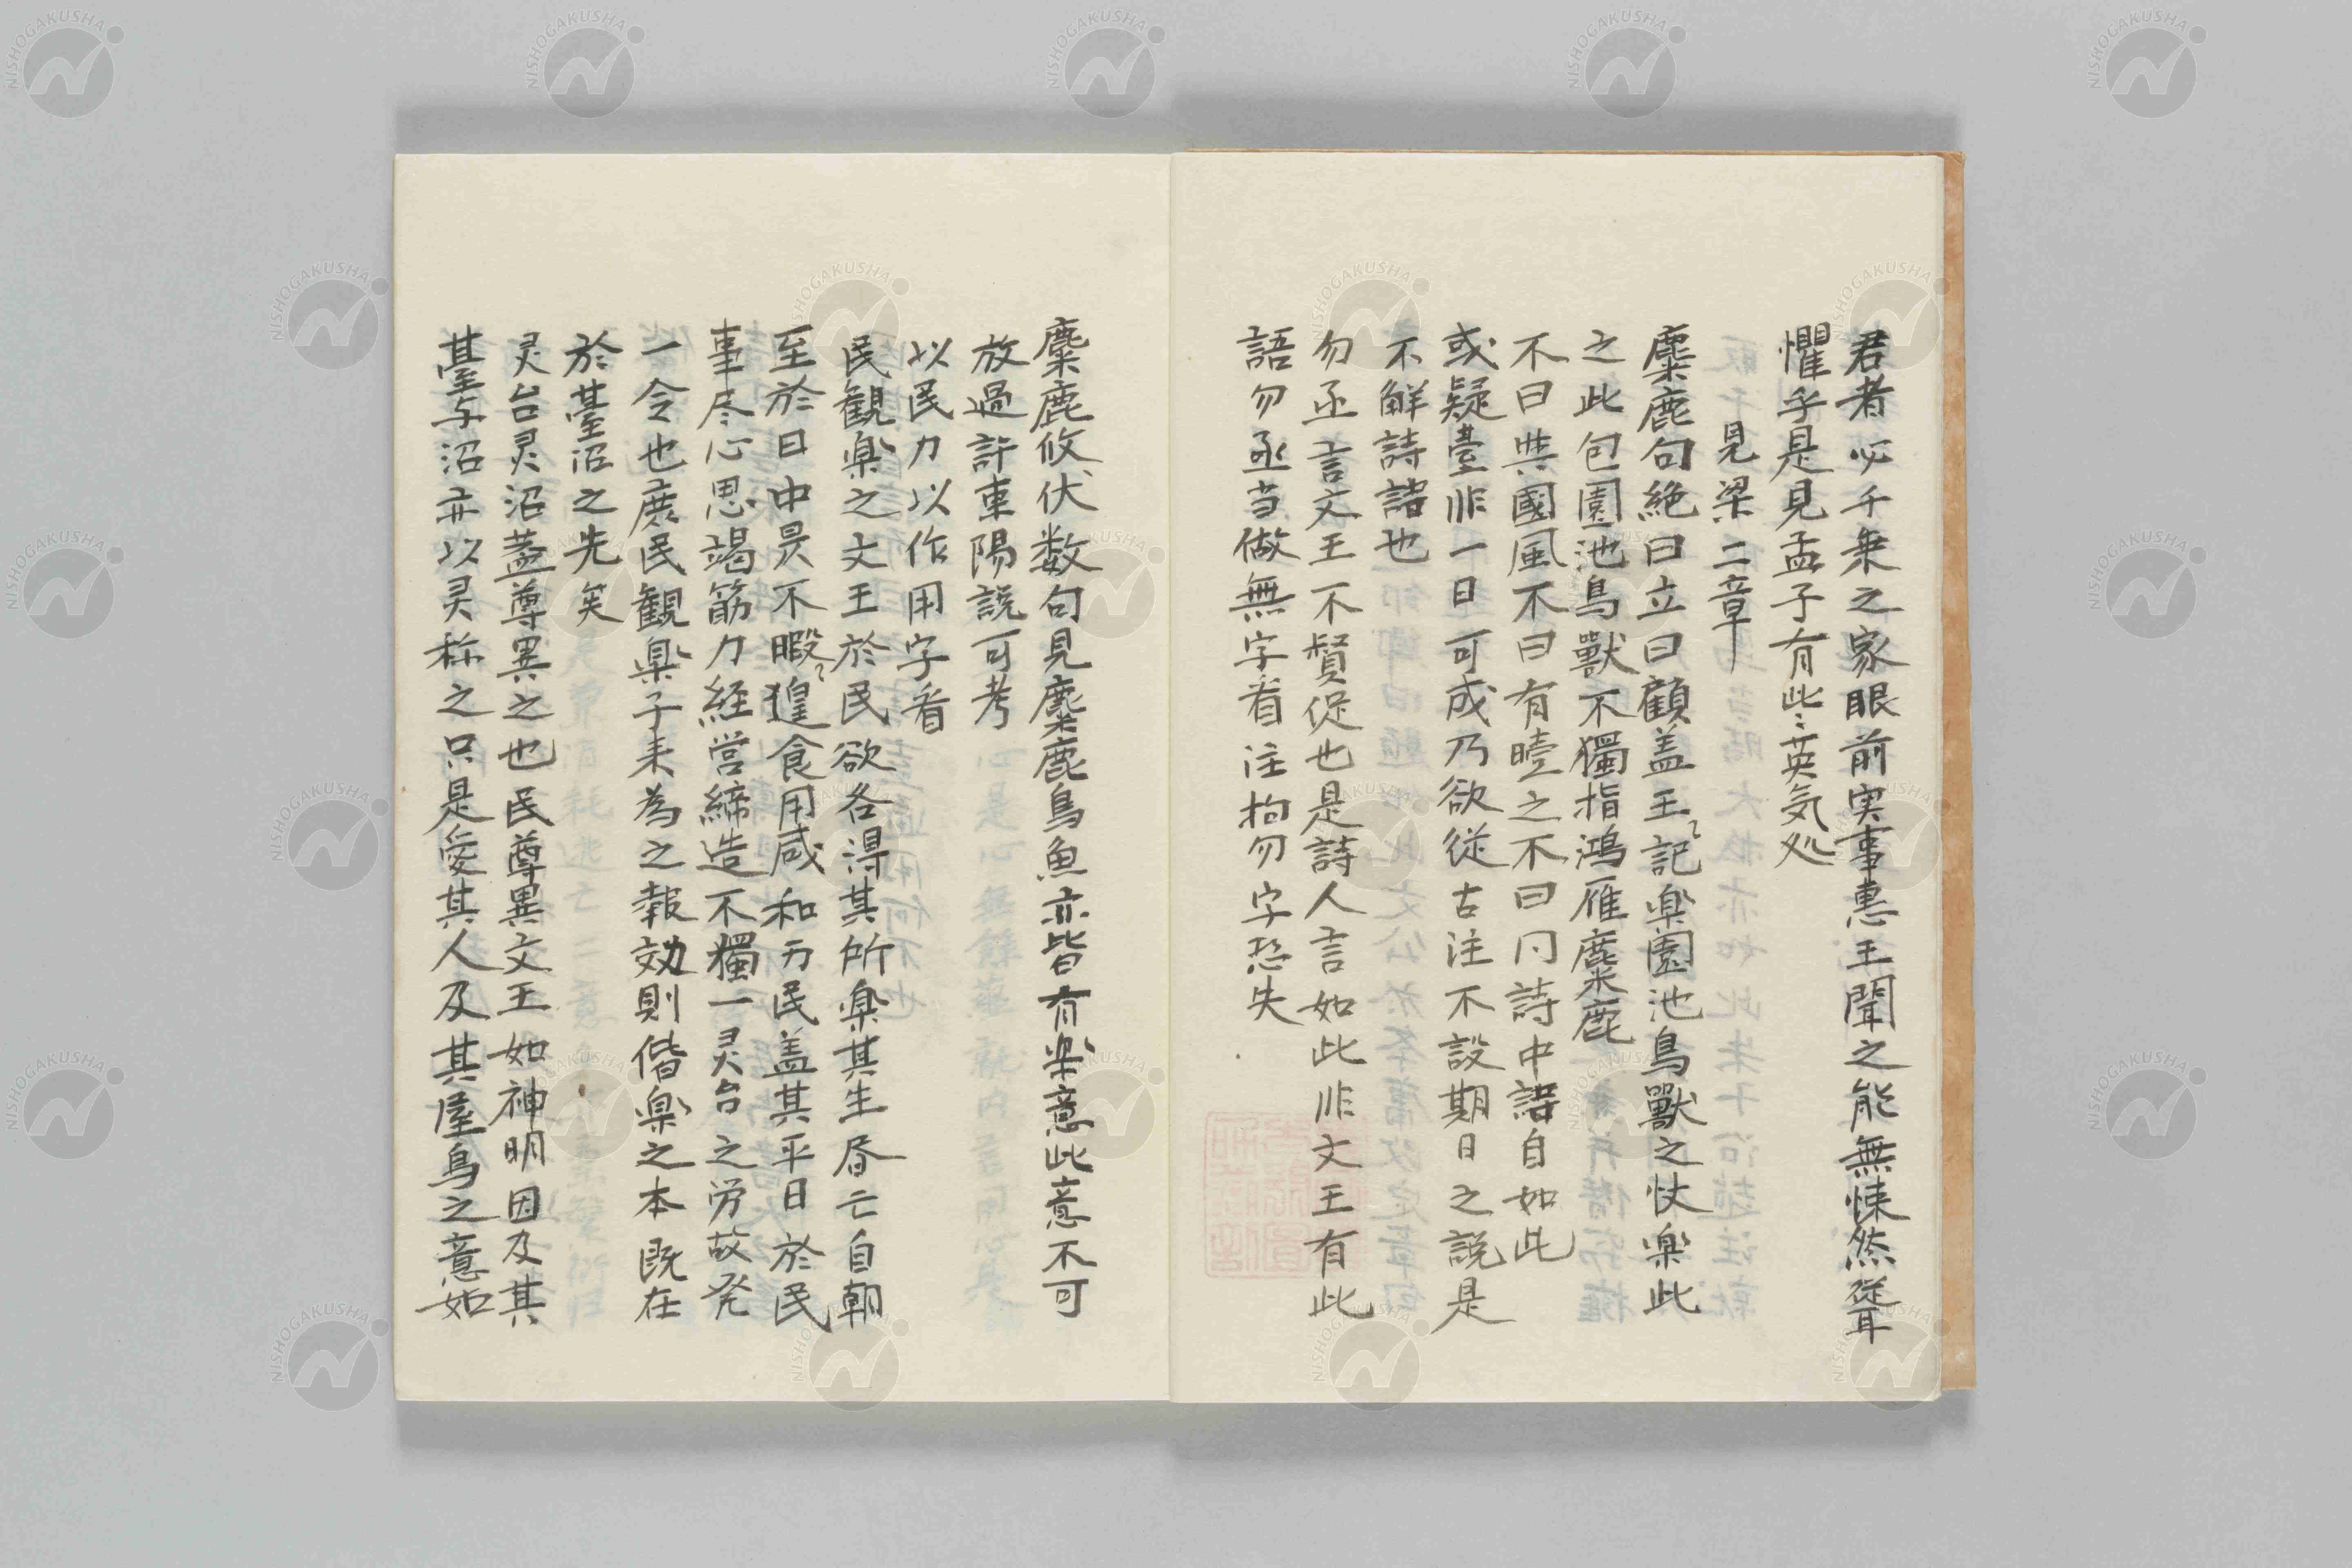 君者必千乗之家眼前実事惠王聞之能無悚然聳
懼乎是見孟子有此〻英気処
見梁二章
麋鹿句絶曰立曰顧盖王〻記楽園池鳥獸之伏楽此
之此包園池鳥獸不獨指鴻雁麋鹿
不曰典國風不曰有曀之不曰冂詩中語自如此
或疑臺非一日可成乃欲従古注不設期日之説是
不觧詩語也
勿亟言文王不督促也是詩人言如此非文王有此
語勿亟当做無字看注拘勿字恐失
麋鹿攸伏数句見麋鹿鳥魚亦皆有楽意此意不可
放過許東陽説可考
以民力以作用字看
民観楽之文王於民欲各得其所楽其生昏亡自朝
至於日中昃不暇〻遑食用咸和万民盖其平日於民
事尽心思竭筋力経営締造不獨一灵台之労故発
一令也庶民観楽子来為之報効則偕楽之本既在
於䑓沼之先矣
灵台灵沼蓋尊異之也民尊異文王如神明因及其
䑓与沼亦以灵称之只是愛其人及其屋烏之意如
NISHOGAKUSHA